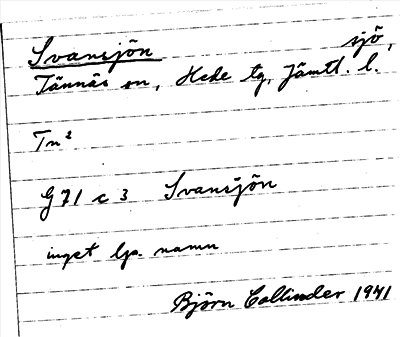 Svansjön sjö,
Tännäs sn, Hede tg, Jämtl. l.
Tn²
G 71 c 3 Svansjön
inget lp. namn
Björn Collinder 1941